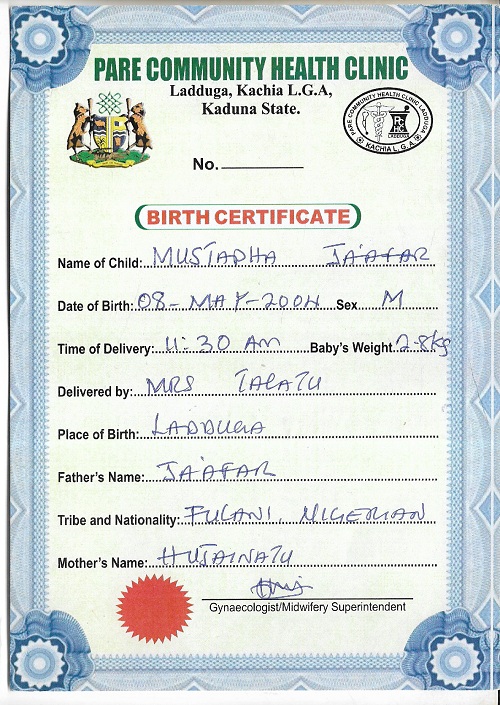 PARE COMMUNITY HEALTH CLINIC
Ladduga, Kachia L.G.A,
Kaduna State.
PARE COMMUNITY HEALTH CLINIC LADDUGA
LADDUGA
KACHIA L.G.A.
No.
BIRTH CERTIFICATE
Name of Child: MUSTAPHA JA'AFAR
Date of Birth: 08-MAY-2004 Sex M
Time of Delivery: 11:30 AM Baby's Weight 2-8kg
Delivered by: MRS TALATU
Place of Birth: LADDUGA
Father's Name: JA'AFAR
Tribe and Nationality: FULANI, NIGERIAN
Mother's Name: HUSAINATU
Gynaecologist/Midwifery Superintendent